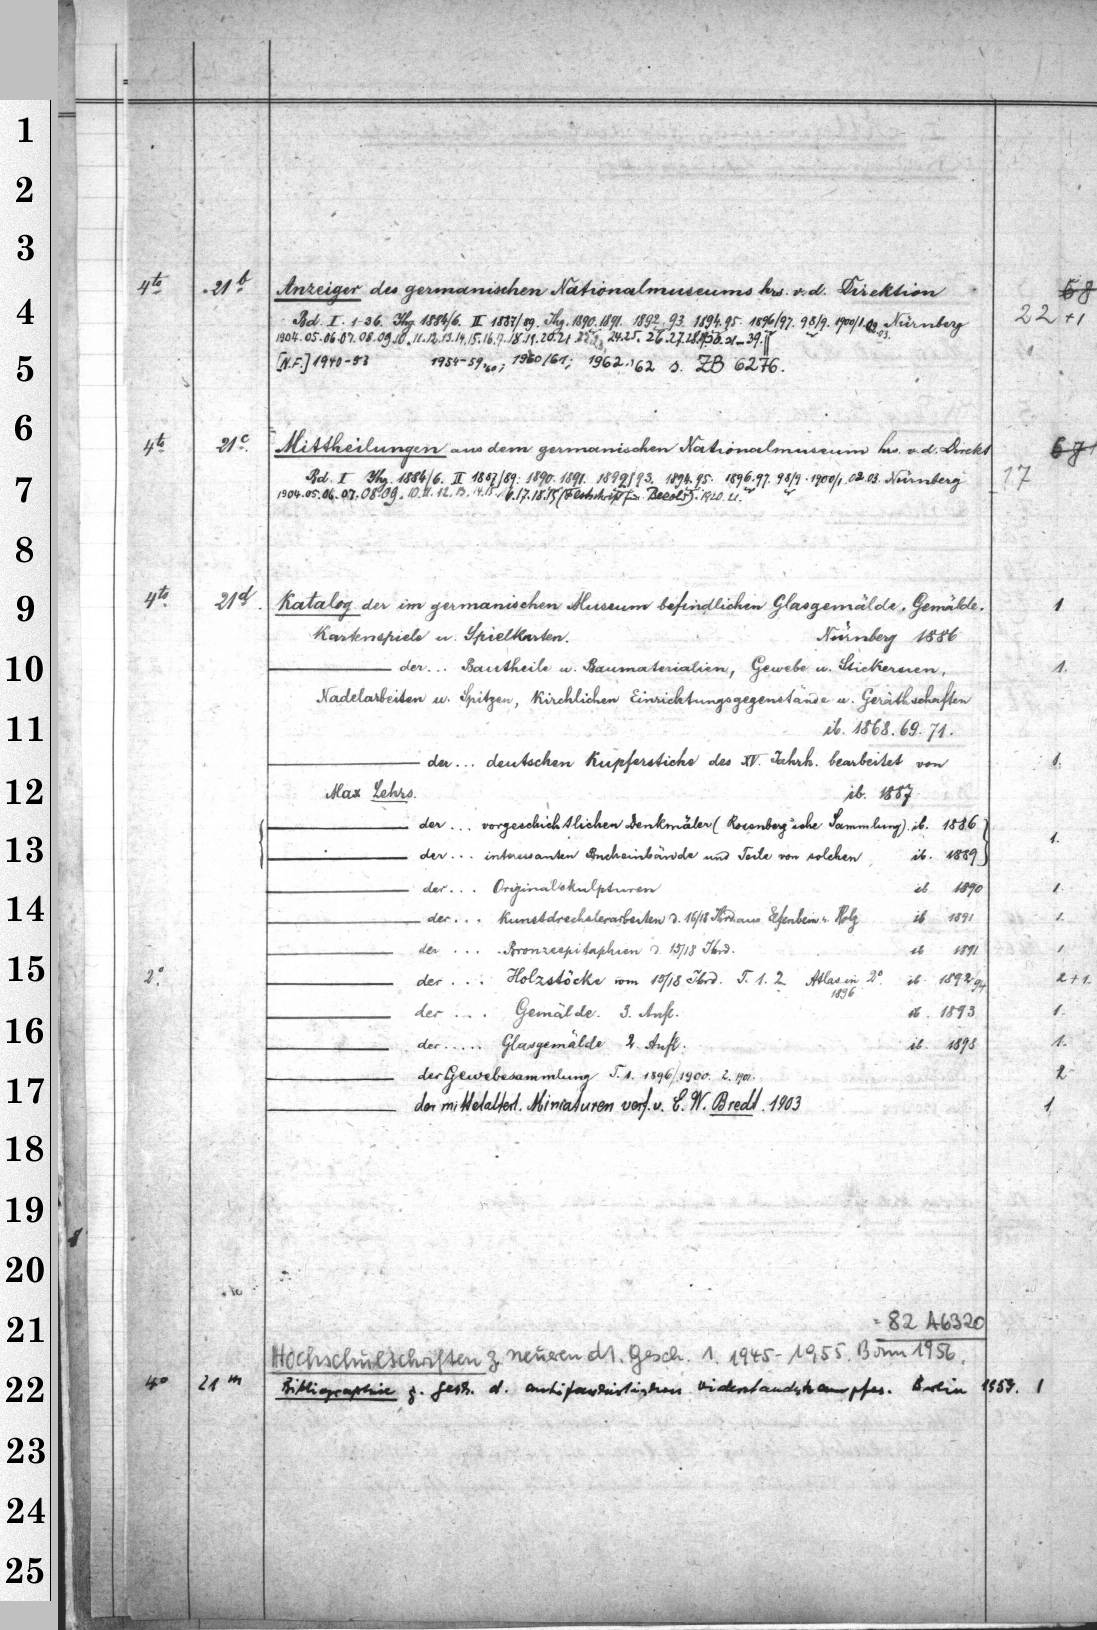 4to 21b Anzeiger des germanischen Nationalmuseums hrs. v. d. Direktion 68
Bd. I. 1-36. Jhg. 1884/6. II 1887/89. Jhg. 1890. 1891. 1892. 93. 1894. 95. 1896/97. 98/9. 1900/1. 02. 03. Nürnberg 22 +1
1904. 05. 06. 07. 08. 09. 10. 11. 12. 13. 14. 15. 16. 17. 18. 19. 20. 21. 24. 25. 26. 27. 28. 39.
[N.F.] 1940-53 1954-59, 60; 1960/61; 1962. 62 s. ZB 6276.
4to 21c. Mittheilungen aus dem germanischen Nationalmuseum hrs. v. d. Direkt 67
Bd. I Jhg. 1884/6. II 1887/89. 1890. 1891. 1892/93. 1894. 95. 1896. 97. 98/9. 1900/1. 02. 03. Nürnberg 17
1904. 05. 06. 07. 08. 09. 10. 11. 12. 13. 14. 15. 16. 17. 18. 19 (Festschrift für Bezold). 1920. 21.
4to 21d. Katalog der im germanischen Museum befindlichen Glasgemälde. Gemälde. 1
Kartenspiele u. Spielkarten. Nürnberg 1886
der... Bautheile u. Baumaterialien, Gewebe u. Stickereien, 1.
Nadelarbeiten u. Spitzen, Kirchlichen Einrichtungsgegenstände u. Geräthschaften
ib. 1868. 69. 71.
der... deutschen Kupferstiche des XV. Jahrh. bearbeitet von 1.
Max Lehrs. ib. 1887
der... vorgeschichtlichen Denkmäler (Rosenberg'sche Sammlung). ib. 1886
1.
der... interessanten Bucheinbände und Teile von solchen ib. 1889
der... Originalskulpturen ib 1890 1.
der... Kunstdrechslerarbeiten d. 16/18 Jhrd. aus Elfenbein u. Holz ib 1891 1.
der... Bronzeepitaphien d. 15/18 Jhrd. ib 1891 1
2°. der... Holzstöcke vom 15/18 Jhrd. T. 1. 2 Atlas in 2°. ib. 1892. 94 2+1.
1896
der.... Gemälde. 3. Aufl. ib. 1893 1.
der..... Glasgemälde 2. Aufl. ib. 1898 1.
der Gewebesammlung T. 1. 1896/1900. 2. 1901. 2
der mittelalterl. Miniaturen verf. v. E. W. Bredt. 1903 1
= 82 A6320
Hochschulschriften z. neueren dt. Gesch. 1. 1945-1955. Bonn 1956.
4° 21m Bibliographie z. Gesch. d. antifaschistischen Widerstandskampfes. Berlin 1959. 1
1
2
3
4
5
6
7
8
9
10
11
12
13
14
15
16
17
18
19
20
21
22
23
24
25